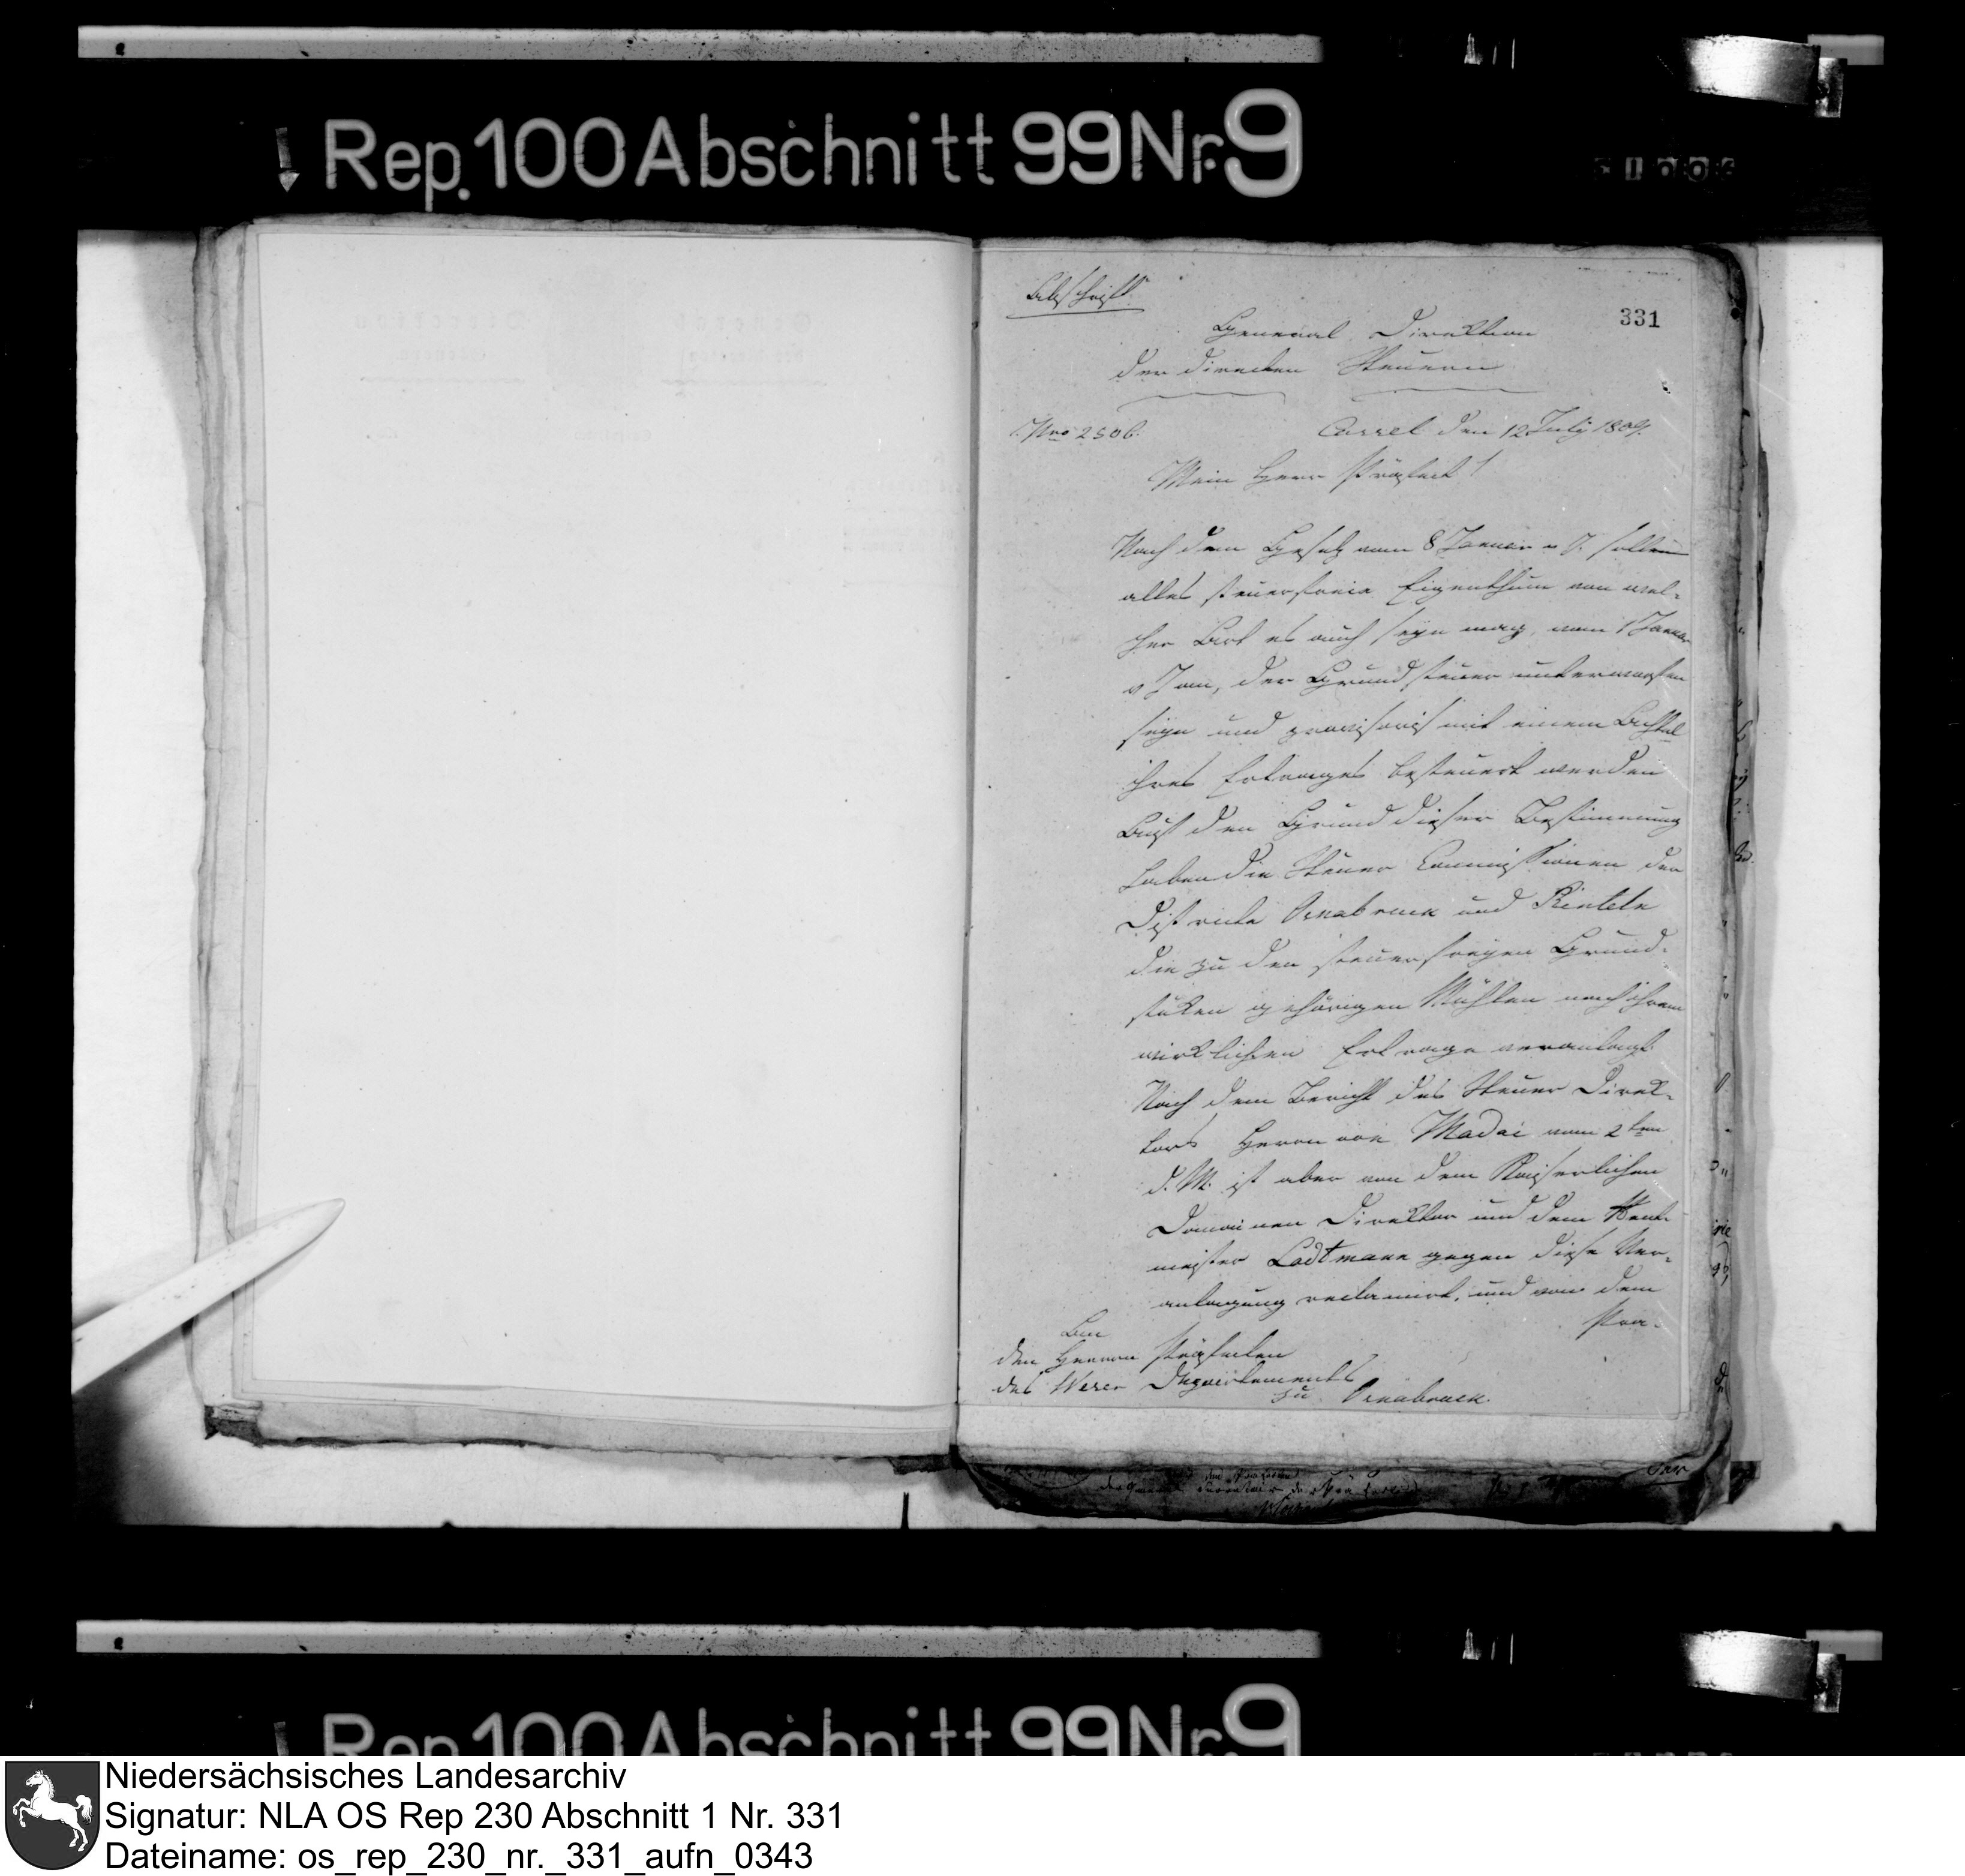 Rep. 100 Abschnitt 99 Nr. 9
331
Abschrift
General Direktion
der directen Steuern
Nro 2506.
Cassel den 12 July 1809.
Mein Herr Präfect!
Nach dem Gesetz vom 8 Januar v J. sollen
alles steuerfreie Eigenthum von wel-
cher Art es auch seyn mag, vom 1 Januar
v J an, der Grundsteuer unterworfen
seyn und provisorisch mit einem Achtel
ihres Ertrages besteuert werden
Auf den Grund dieser Bestimmung
haben die Steuer Commissionen der
Districte Osnabrück und Rinteln
die zu den steuerfreyen Grund-
stüken gehörigen Mühlen nach ihrem
wirklichen Ertrage veranlagt.
Nach dem Bericht des Steuer Direk-
tors Herrn von Madai vom 2ten
d. M. ist aber von dem Kaiserlichen
Domainen Direktor und dem Rent-
meister Lodtmann gegen diese Ver-
anlagung reclamirt, und von dem
An
den Herrn Präfecten
des Weser Departements
zu Osnabrück.
Rep. 100 Abschnitt 99 Nr. 9
Niedersächsisches Landesarchiv
Signatur: NLA OS Rep 230 Abschnitt 1 Nr. 331
Dateiname: os_rep_230_nr._331_aufn_0343